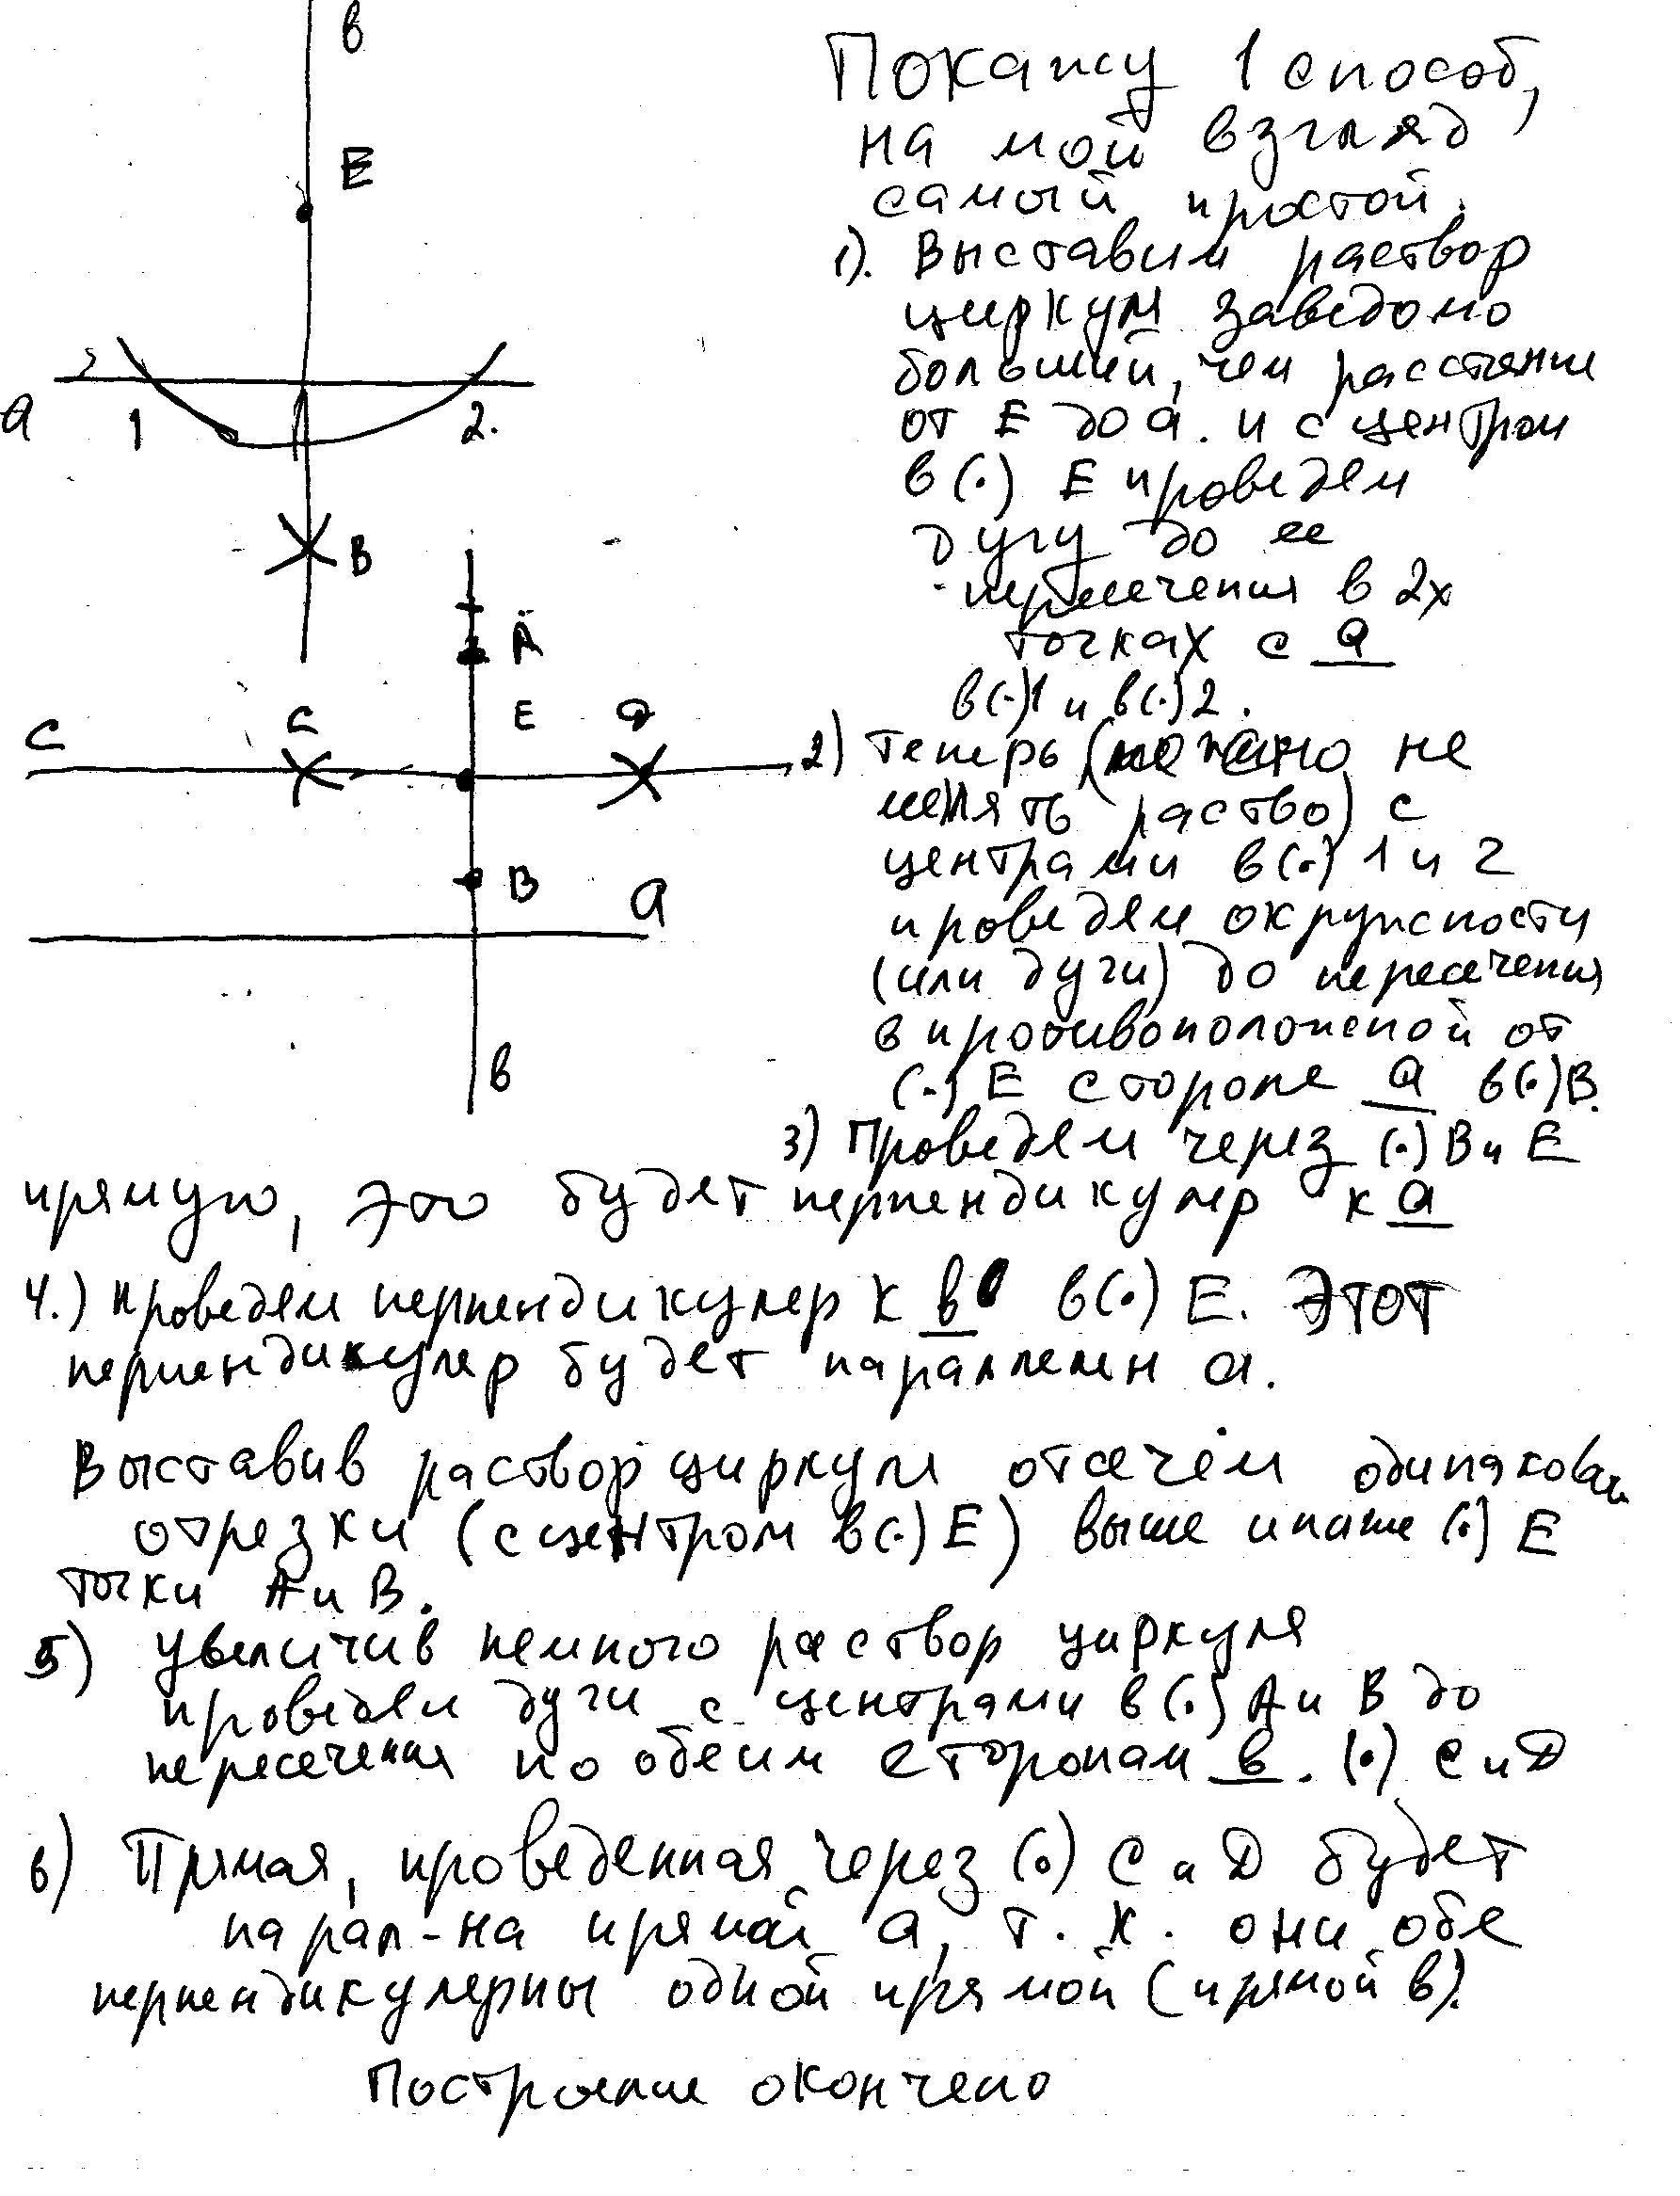 в
Е
а
1
2.
В
А
Е
С
с
д
В
а
в
Покажу 1 способ,
на мой взгляд
самый простой.
1). Выставим раствор
циркуля заведомо
больший, чем расстояние
от Е до а. и с центром
в (.) Е проведем
дугу до ее
пересечения в 2х
точках с а
в(.)1 и в(.)2.
2) Теперь (можно не
менять раство) с
центрами в(.) 1 и 2
проведем окружности
(или дуги) до пересечения
в противоположной от
(.) Е стороне а в(.)В.
3) Проведем через (.) В и Е
прямую, это будет перпендикуляр к а
4.) Проведем перпендикуляр к в в(.) Е. Этот
перпендикуляр будет параллелен а.
Выставив раствор циркуля отсечём одинаковые
отрезки (с центром в(.) Е) выше и ниже (.) Е
точки А и В.
5) увеличив немного раствор циркуля
проведем дуги с центрами в(.) А и В до
пересечения по обеим сторонам в. (.) С и D
6) Прямая, проведенная через (.) С и D будет
парал-на прямой а, т. к. они обе
перпендикулярны одной прямой (прямой в).
Построение окончено